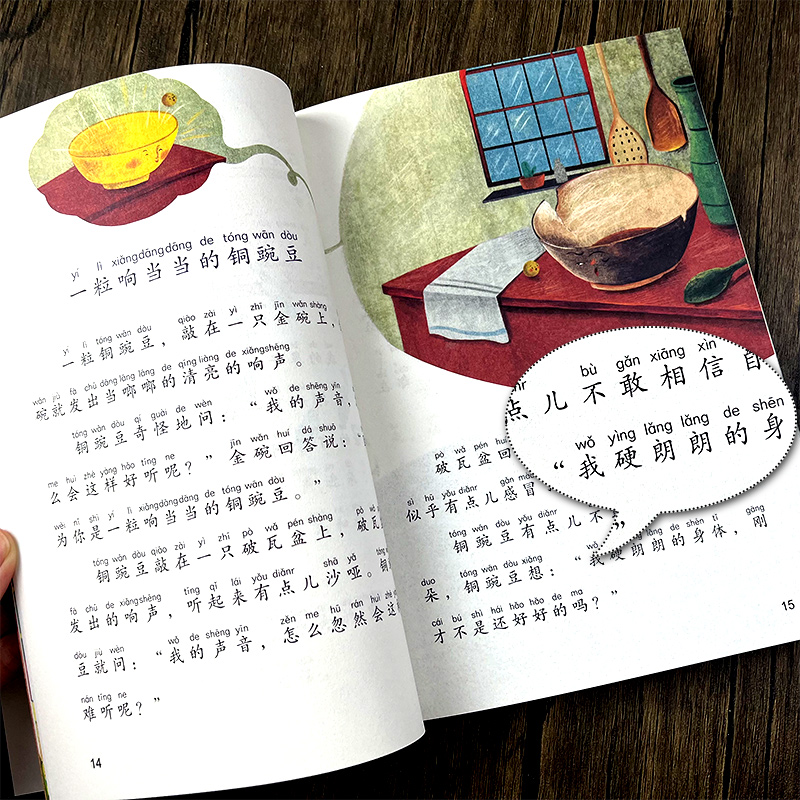 yí lì xiǎngdāngdāng de tóng wān dòu
一粒响当当的铜豌豆
yí lì tóng wān dòu qiāo zài yì zhī jīn wǎn shàng
一粒铜豌豆，敲在一只金碗上，
wǎn jiù fā chū dāng lāng lāng de qīng liàng de xiǎngshēng
碗就发出当啷啷的清亮的响声。
tóng wān dòu qí guài de wèn wǒ de shēng yīn
铜豌豆奇怪地问：“我的声音，
me huì zhè yàng hǎo tīng ne jīn wǎn huí dá shuō
么会这样好听呢？”金碗回答说：“
wèi nǐ shì yí lì xiǎngdāngdāng de tóng wān dòu
为你是一粒响当当的铜豌豆。”
tóng wān dòu qiāo zài yì zhī pò wǎ pén shàng pò wǎ
铜豌豆敲在一只破瓦盆上，破瓦
fā chū de xiǎngshēng tīng qǐ lái yǒu diǎnr shā yǎ
发出的响声，听起来有点儿沙哑。
dòu jiù wèn wǒ de shēng yīn zěn me hū rán huì zhè
豆就问：“我的声音，怎么忽然会这
nán tīng ne
难听呢？”
14
pò wǎ pén huí
破瓦盆回
sì hū yǒu diǎnr gǎn mào
似乎有点儿感冒
tóng wān dòu yǒu diǎnr bù
铜豌豆有点儿不
duo tóng wān dòu xiǎng wǒ yìng lǎng lǎng de shēn tǐ gāng
朵，铜豌豆想：“我硬朗朗的身体，刚
cái bú shì hái hǎo hǎo de ma
才不是还好好的吗？”
15
bù gǎn xiāng xìn
点儿不敢相信自
wǒ yìng lǎng lǎng de shēn
“我硬朗朗的身